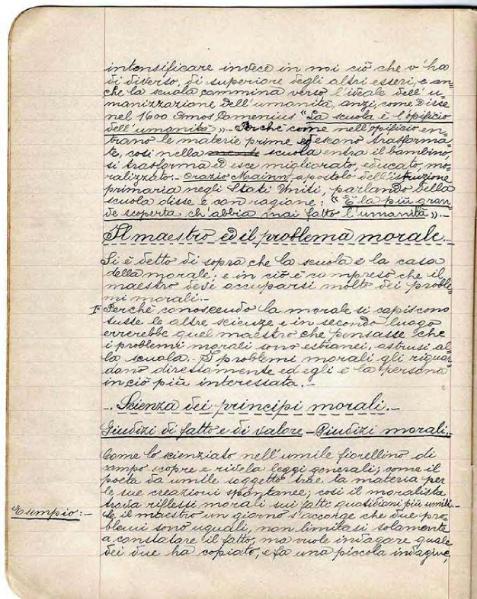 intensificare invece in noi ciò che v'ha
di diverso, di superiore degli altri esseri, e an=
che la scuola cammina verso l'ideale dell'u
manizzazione dell'umanità, anzi, come disse
nel 1600 Amos Comenius "La scuola è l'opificio
dell'umanità" — Perché come nell'opificio en=
trano le materie prime ed escono trasforma=
te, così nella scuola entra il bambino,
si trasforma ed esce migliorato, educato, mo=
ralizzato. — Orazio Mainn apostolo dell'istruzione
primaria negli Stati Uniti, parlando della
scuola disse e con ragione: "È la più gran=
de scoperta ch'abbia mai fatto l'umanità" —
Il maestro ed il problema morale. —
Si è detto di sopra che la scuola è la casa
della morale: e in ciò è compreso che il
maestro devi occuparsi molto dei proble=
mi morali. —
I° Perché conoscendo la morale si capiscono
tutte le altre scienze e in secondo luogo
errerebbe quel maestro che pensasse che
i problemi morali sono estranei, astrusi al=
la scuola. I problemi morali gli riguar=
dano direttamente ed egli è la persona
in ciò più interessata. —
. — Scienza dei principi morali. —
Giudizi di fatto e di valore — Giudizi morali. —
Come lo scienziato nell'umile fiorellino di
campo scopre e rivela leggi generali; come il
poeta da umile soggetto trae la materia per
le sue creazioni spontanee; così il moralista
trova riflessi morali sui fatti quotidiani più umili. —
Esempio: — Se il maestro un giorno s'accorge che due pro=
blemi sono uguali, non limitasi solamente
a constatare il fatto, ma vuole indagare quale
dei due ha copiato, e fa una piccola indagine,